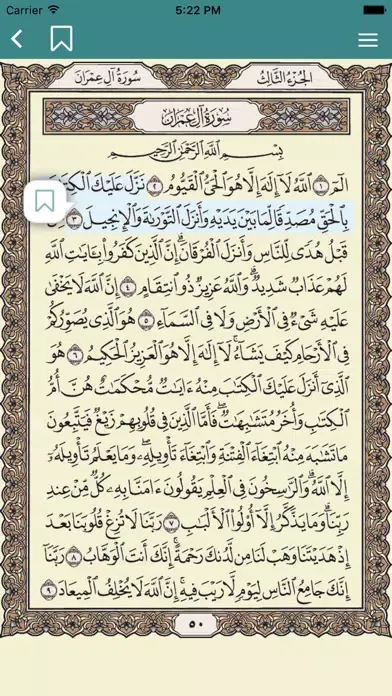 Carrier 5:22 PM
سُورَةُ آلِ عِمْرَان الجُزْءُ الثَّالِثُ
سُورَةُ آلِ عِمْرَانَ
بِسْمِ ٱللَّهِ ٱلرَّحْمَٰنِ ٱلرَّحِيمِ
الٓمٓ ١ ٱللَّهُ لَآ إِلَٰهَ إِلَّا هُوَ ٱلْحَىُّ ٱلْقَيُّومُ ٢ نَزَّلَ عَلَيْكَ ٱلْكِتَٰبَ
بِٱلْحَقِّ مُصَدِّقًا لِّمَا بَيْنَ يَدَيْهِ وَأَنزَلَ ٱلتَّوْرَىٰةَ وَٱلْإِنجِيلَ ٣ مِن
قَبْلُ هُدًى لِّلنَّاسِ وَأَنزَلَ ٱلْفُرْقَانَ ۗ إِنَّ ٱلَّذِينَ كَفَرُوا۟ بِـَٔايَٰتِ ٱللَّهِ
لَهُمْ عَذَابٌ شَدِيدٌ ۗ وَٱللَّهُ عَزِيزٌ ذُو ٱنتِقَامٍ ٤ إِنَّ ٱللَّهَ لَا يَخْفَىٰ
عَلَيْهِ شَىْءٌ فِى ٱلْأَرْضِ وَلَا فِى ٱلسَّمَآءِ ٥ هُوَ ٱلَّذِى يُصَوِّرُكُمْ
فِى ٱلْأَرْحَامِ كَيْفَ يَشَآءُ ۚ لَآ إِلَٰهَ إِلَّا هُوَ ٱلْعَزِيزُ ٱلْحَكِيمُ ٦ هُوَ
ٱلَّذِىٓ أَنزَلَ عَلَيْكَ ٱلْكِتَٰبَ مِنْهُ ءَايَٰتٌ مُّحْكَمَٰتٌ هُنَّ أُمُّ
ٱلْكِتَٰبِ وَأُخَرُ مُتَشَٰبِهَٰتٌ ۖ فَأَمَّا ٱلَّذِينَ فِى قُلُوبِهِمْ زَيْغٌ فَيَتَّبِعُونَ
مَا تَشَٰبَهَ مِنْهُ ٱبْتِغَآءَ ٱلْفِتْنَةِ وَٱبْتِغَآءَ تَأْوِيلِهِۦ ۗ وَمَا يَعْلَمُ تَأْوِيلَهُۥٓ
إِلَّا ٱللَّهُ ۗ وَٱلرَّٰسِخُونَ فِى ٱلْعِلْمِ يَقُولُونَ ءَامَنَّا بِهِۦ كُلٌّ مِّنْ عِندِ
رَبِّنَا ۗ وَمَا يَذَّكَّرُ إِلَّآ أُو۟لُوا۟ ٱلْأَلْبَٰبِ ٧ رَبَّنَا لَا تُزِغْ قُلُوبَنَا بَعْدَ
إِذْ هَدَيْتَنَا وَهَبْ لَنَا مِن لَّدُنكَ رَحْمَةً ۚ إِنَّكَ أَنتَ ٱلْوَهَّابُ ٨ رَبَّنَآ
إِنَّكَ جَامِعُ ٱلنَّاسِ لِيَوْمٍ لَّا رَيْبَ فِيهِ ۚ إِنَّ ٱللَّهَ لَا يُخْلِفُ ٱلْمِيعَادَ ٩
٥٠